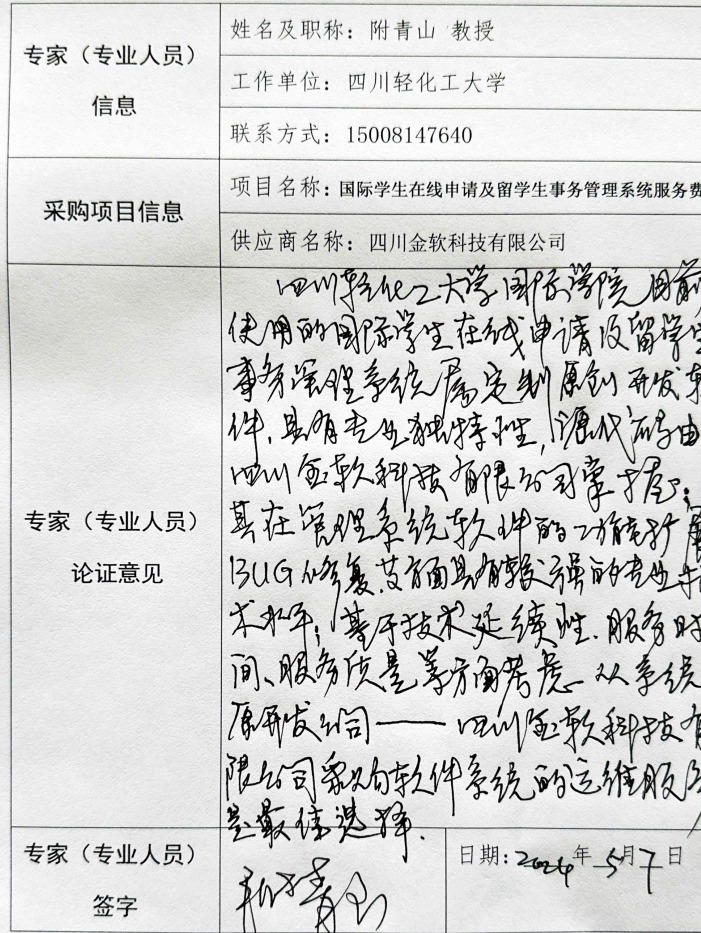 专家（专业人员）
信息
姓名及职称：附青山 教授
工作单位：四川轻化工大学
联系方式：15008147640
采购项目信息
项目名称：国际学生在线申请及留学生事务管理系统服务费
供应商名称：四川金软科技有限公司
专家（专业人员）
论证意见
四川轻化工大学国际学院目前
使用的国际学生在线申请及留学生
事务管理系统属定制原创开发软
件，具有专业独特性，源代码由
四川金软科技有限公司掌握；
其在管理系统软件的功能扩展
BUG修复等方面具有较强的专业技
术水平；基于技术延续性、服务时
间、服务质量等方面考虑 从系统
原开发公司——四川金软科技有
限公司采购软件系统的运维服务
是最佳选择.
专家（专业人员）
签字
附青山
日期：2024年5月7日